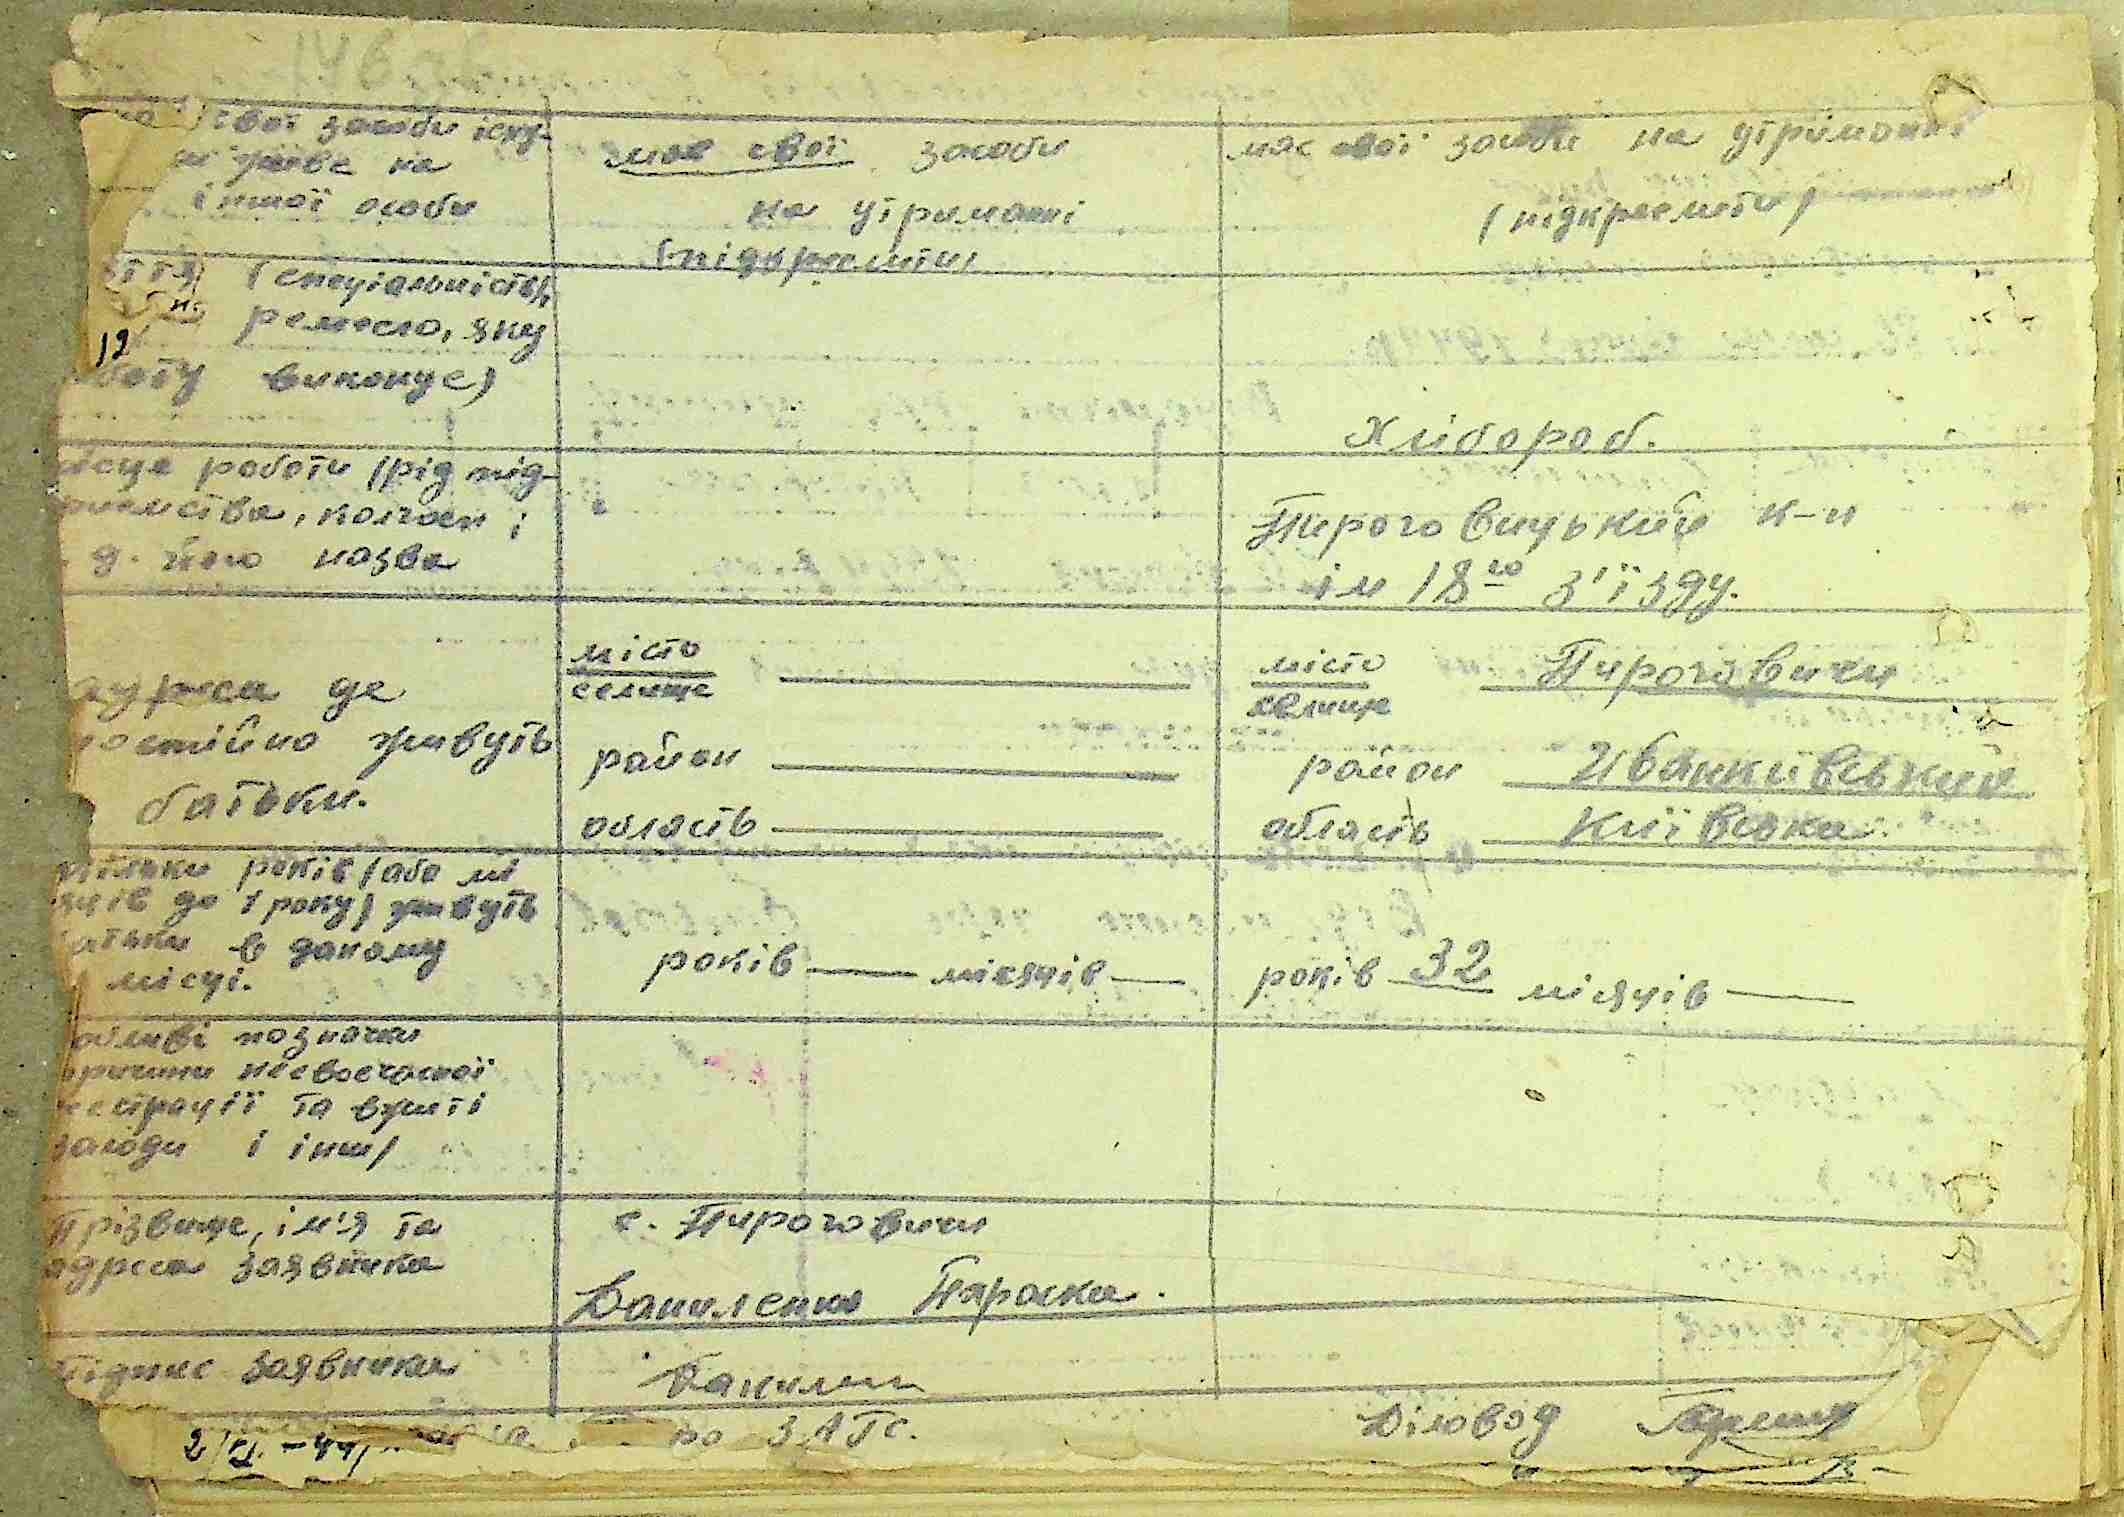 свої засоби існу-
живе на
іншої особи
має свої засоби
на утриманні
(підкреслити)
має свої засоби на утриманні
(підкреслити)
ття (спеціальність,
ремесло, яку
боту виконує)
12
Хлібороб.
місце роботи (рід під-
приємства, колгосп і
т. д. його назва
Пироговицький к-п
ім 18го з'їзду.
адреса де
постійно живуть
батьки.
місто
селище
район
область
місто Пироговичи
селище
район Иванкивський
область Київська
скільки років (або мі
сяців до 1 року) живуть
батьки в даному
місці.
років — місяців —
років 32 місяців —
особливі позначки
причини несвоєчасної
реєстрації та вжиті
заходи і інш)
Прізвище, ім'я та
адреса заявника
с. Пироговичи
Даниленко Параска.
Підпис заявника
Данилен
2/VI - 44
по ЗАГС.
Діловод